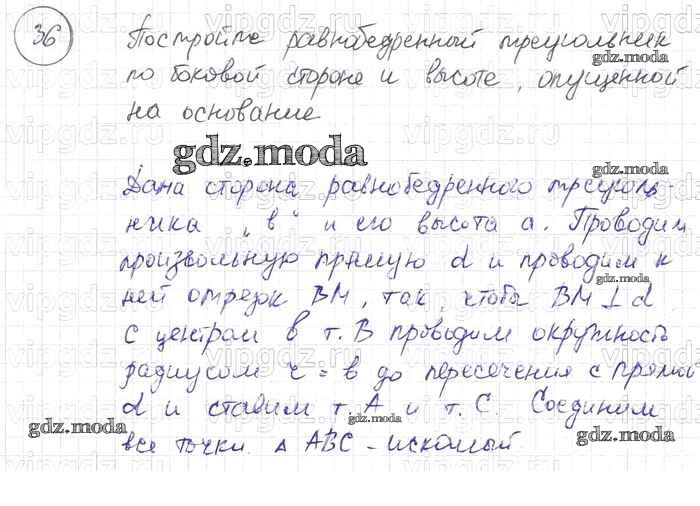 36
Постройте равнобедренный треугольник
по боковой стороне и высоте, опущенной
на основание
gdz.moda
Дана сторона равнобедренного треуголь-
ника „в“ и его высота а. Проводим
произвольную прямую d и проводим к
ней отрезок BM, так, чтобы BM ⊥ d.
С центром в т. В проводим окружность
радиусом r = в до пересечения с прямой
d и ставим т. А и т. С. Соединим
все точки. Δ ABC - искомый.
gdz.moda